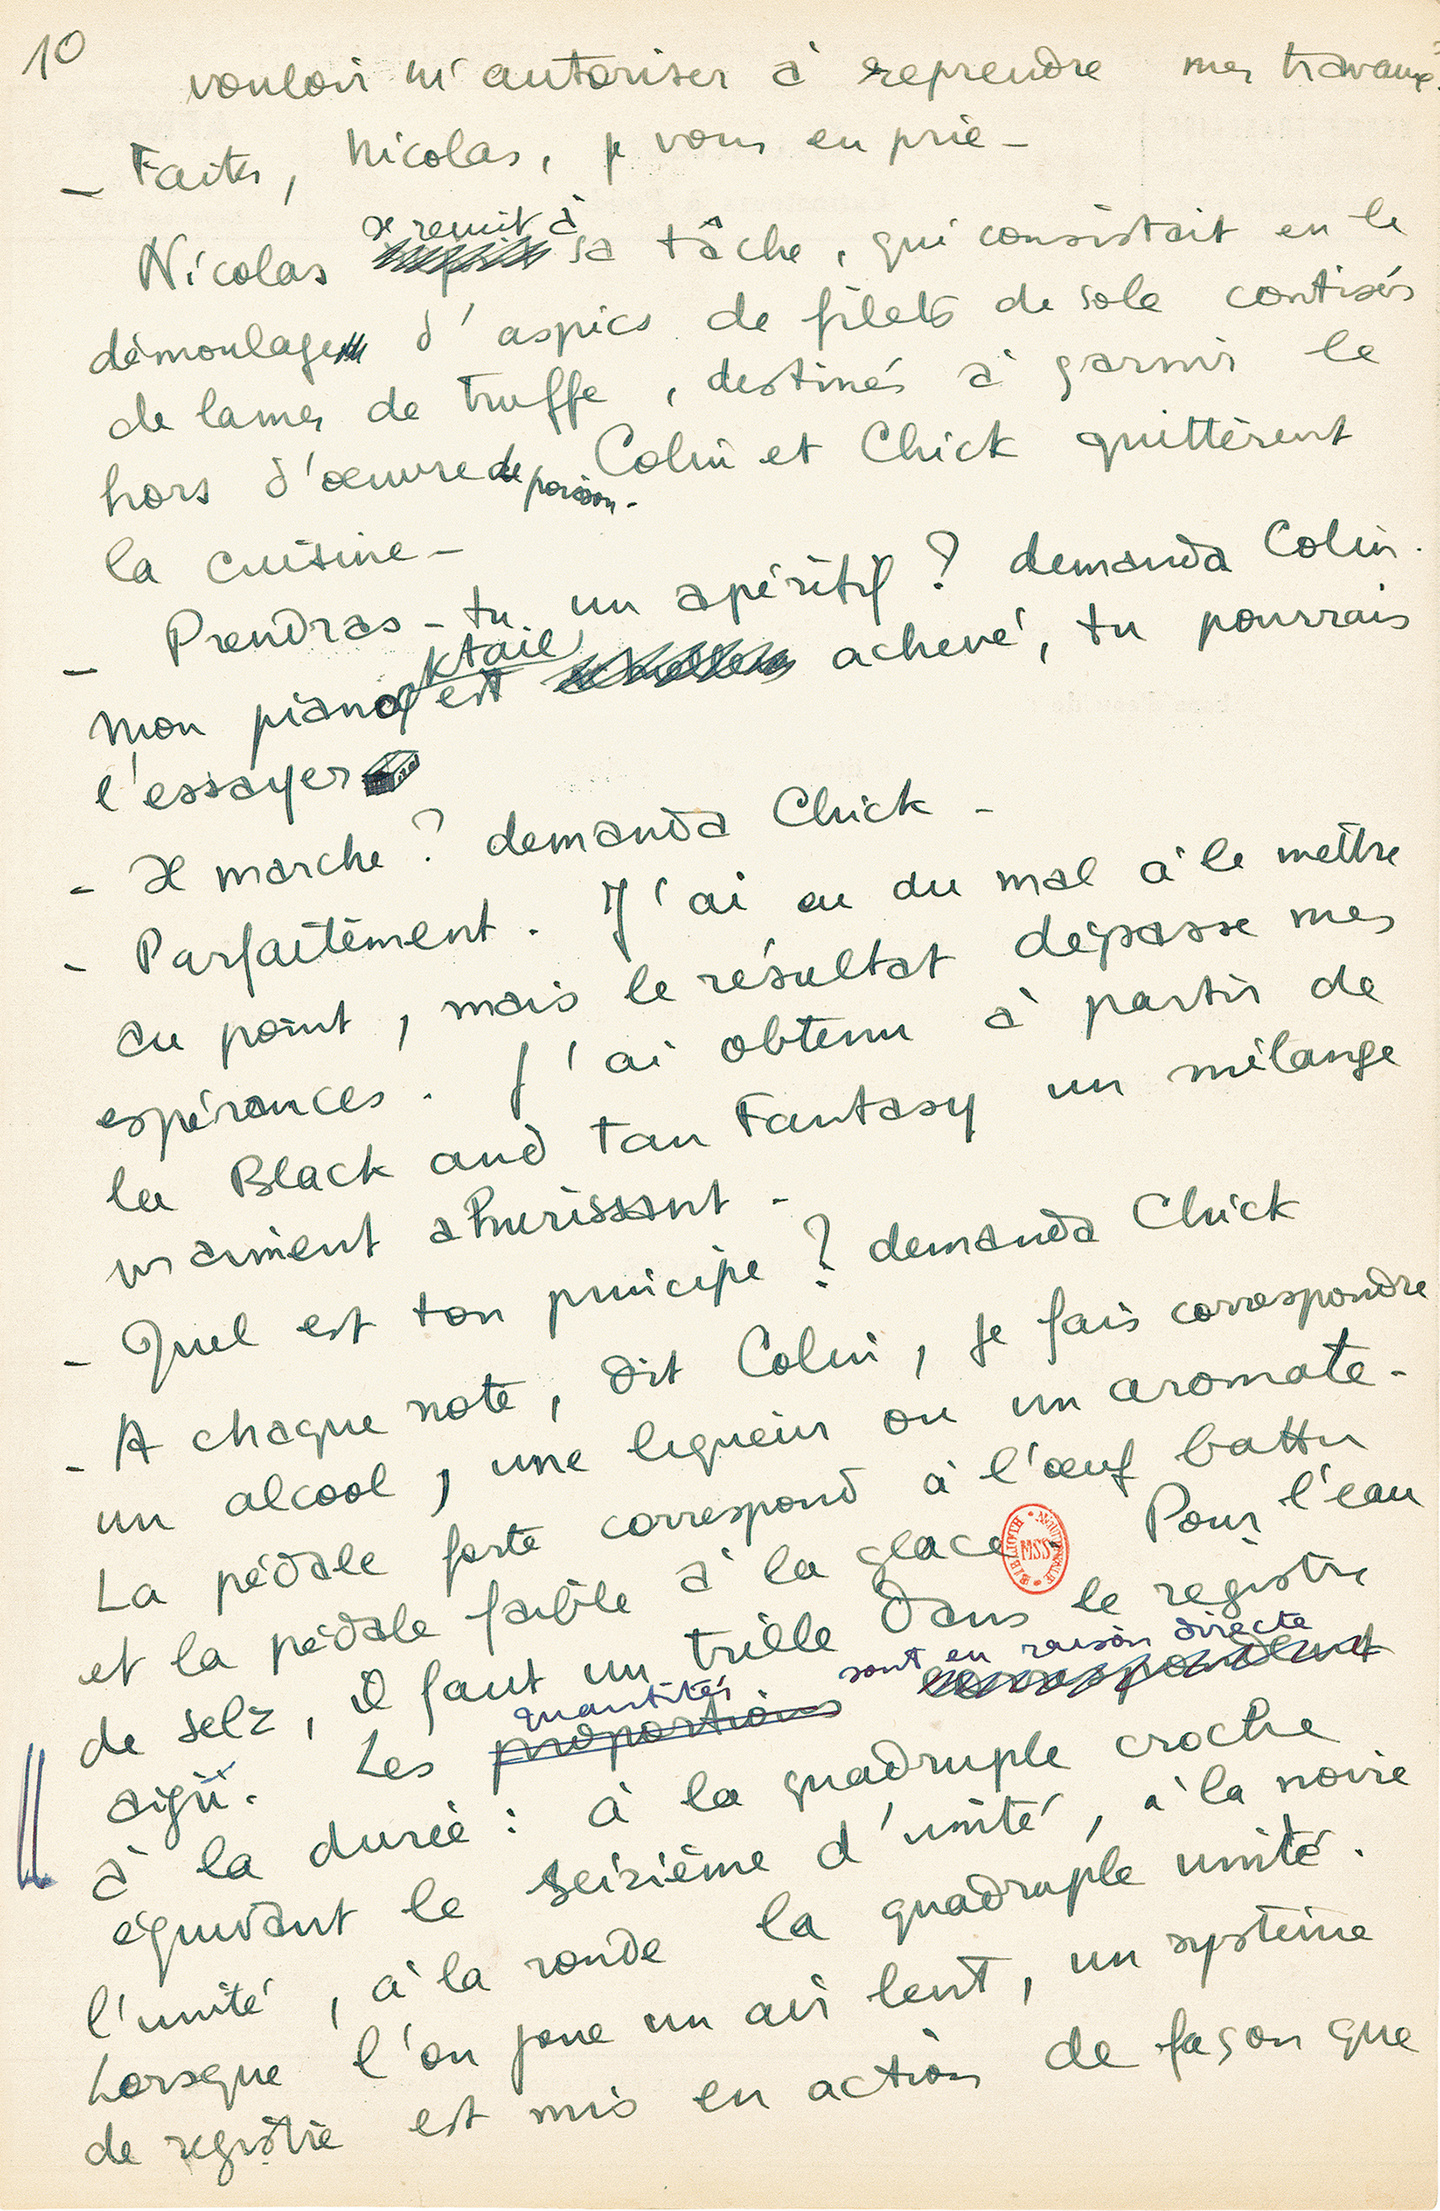 10
vouloir m'autoriser à reprendre mes travaux.
- Faites, Nicolas, je vous en prie -
Nicolas se remit à sa tâche, qui consistait en le
démoulage d'aspics de filets de sole contisés
de lames de truffe, destinés à garnir le
hors d'œuvre de poisson. Colin et Chick quittèrent
la cuisine -
- Prendras-tu un apéritif ? demanda Colin.
Mon pianocktail est achevé, tu pourrais
l'essayer
- Il marche ? demanda Chick -
- Parfaitement. J'ai eu du mal à le mettre
au point, mais le résultat dépasse mes
espérances. J'ai obtenu à partir de
la Black and tan Fantasy un mélange
vraiment ahurissant -
- Quel est ton principe ? demanda Chick
- A chaque note, dit Colin, je fais correspondre
un alcool, une liqueur ou un aromate -
La pédale forte correspond à l'œuf battu
et la pédale faible à la glace. Pour l'eau
de selz, il faut un trille dans le registre
aigü. Les proportions quantités sont en raison directe correspondent
à la durée : à la quadruple croche
équivaut le seizième d'unité, à la noire
l'unité, à la ronde la quadruple unité.
Lorsque l'on joue un air lent, un système
de registre est mis en action de façon que
MSS